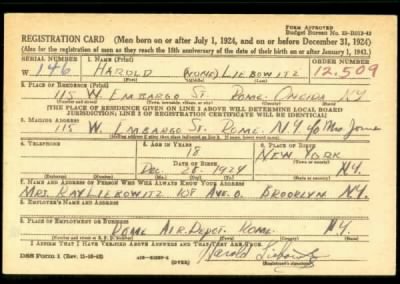 FORM APPROVED
Budget Bureau No. 33-R012-42
REGISTRATION CARD (Men born on or after July 1, 1924, and on or before December 31, 1924)
(Also for the registration of men as they reach the 18th anniversary of the date of their birth on or after January 1, 1943.)
SERIAL NUMBER 1. NAME (Print) ORDER NUMBER
W 146 HAROLD (NONE) LIEBOWITZ 12,509
2. PLACE OF RESIDENCE (Print)
115 W. EMBARGO ST. ROME ONEIDA NY
(THE PLACE OF RESIDENCE GIVEN ON LINE 2 ABOVE WILL DETERMINE LOCAL BOARD
JURISDICTION; LINE 2 OF REGISTRATION CERTIFICATE WILL BE IDENTICAL)
3. MAILING ADDRESS
115 W. EMBARGO ST. ROME. N.Y. c/o Mrs
4. TELEPHONE 5. AGE IN YEARS 6. PLACE OF BIRTH
18 NEW YORK
DATE OF BIRTH
DEC. 28 1924 N.Y.
7. NAME AND ADDRESS OF PERSON WHO WILL ALWAYS KNOW YOUR ADDRESS
MRS. RAY LIEBOWITZ 108 AVE. O. BROOKLYN N.Y.
8. EMPLOYER'S NAME AND ADDRESS
9. PLACE OF EMPLOYMENT OR BUSINESS
ROME AIR DEPOT. ROME. N.Y.
I AFFIRM THAT I HAVE VERIFIED ABOVE ANSWERS AND THAT THEY ARE TRUE.
DSS Form 1 (Rev. 11-16-42) (OVER) Harold Liebowitz